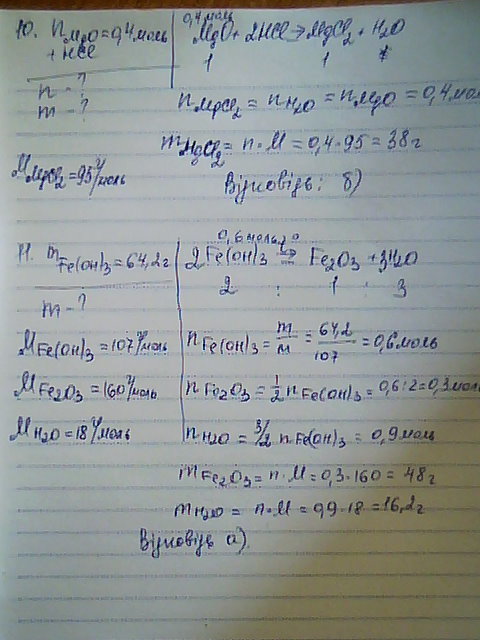 10. nMgO = 0,4 моль
+ HCl
n - ?
m - ?
MMgCl2 = 95 г/моль
0,4 моль
MgO + 2HCl → MgCl2 + H2O
1 1
nMgCl2 = nH2O = nMgO = 0,4 мол
mMgCl2 = n · M = 0,4 · 95 = 38 г
Відповідь: б)
11. mFe(OH)3 = 64,2 г
m - ?
MFe(OH)3 = 107 г/моль
MFe2O3 = 160 г/моль
MH2O = 18 г/моль
0,6 моль
2Fe(OH)3 Fe2O3 + 3H2O
2 : 1 : 3
nFe(OH)3 = m/M = 64,2/107 = 0,6 моль
nFe2O3 = 1/2 nFe(OH)3 = 0,6 : 2 = 0,3 мол
nH2O = 3/2 nFe(OH)3 = 0,9 моль
mFe2O3 = n · M = 0,3 · 160 = 48 г
mH2O = n · M = 0,9 · 18 = 16,2 г
Відповідь а).